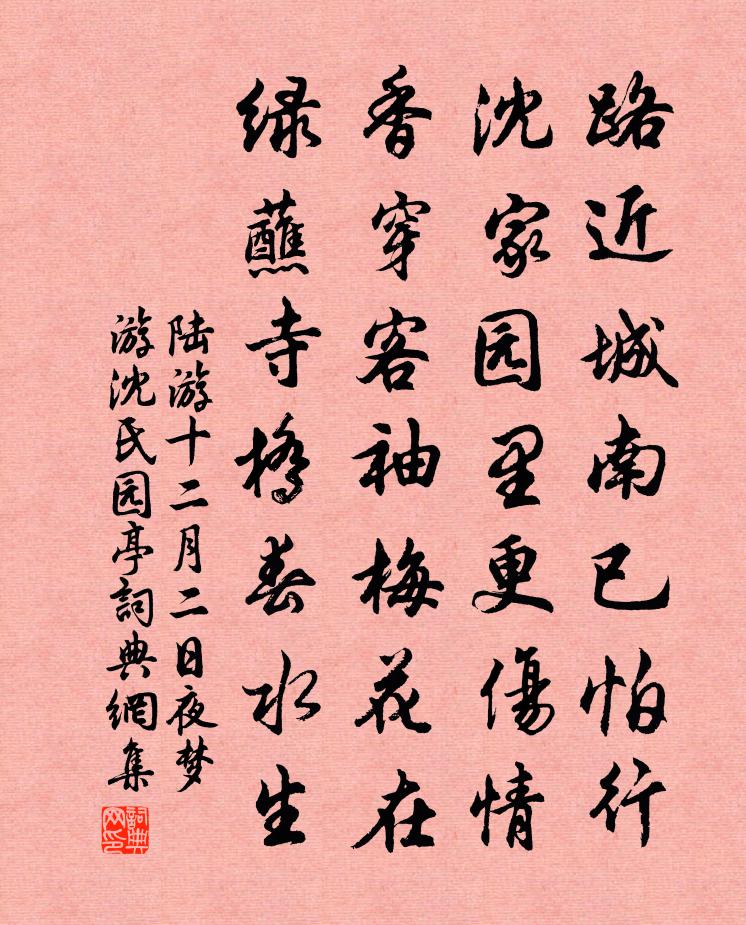 路近城南已怕行
沈家园里更傷情
香穿客袖梅花在
绿蘸寺橋春水生
陆游十二月二日夜梦
游沈氏园亭詞典網集
詞典
网印